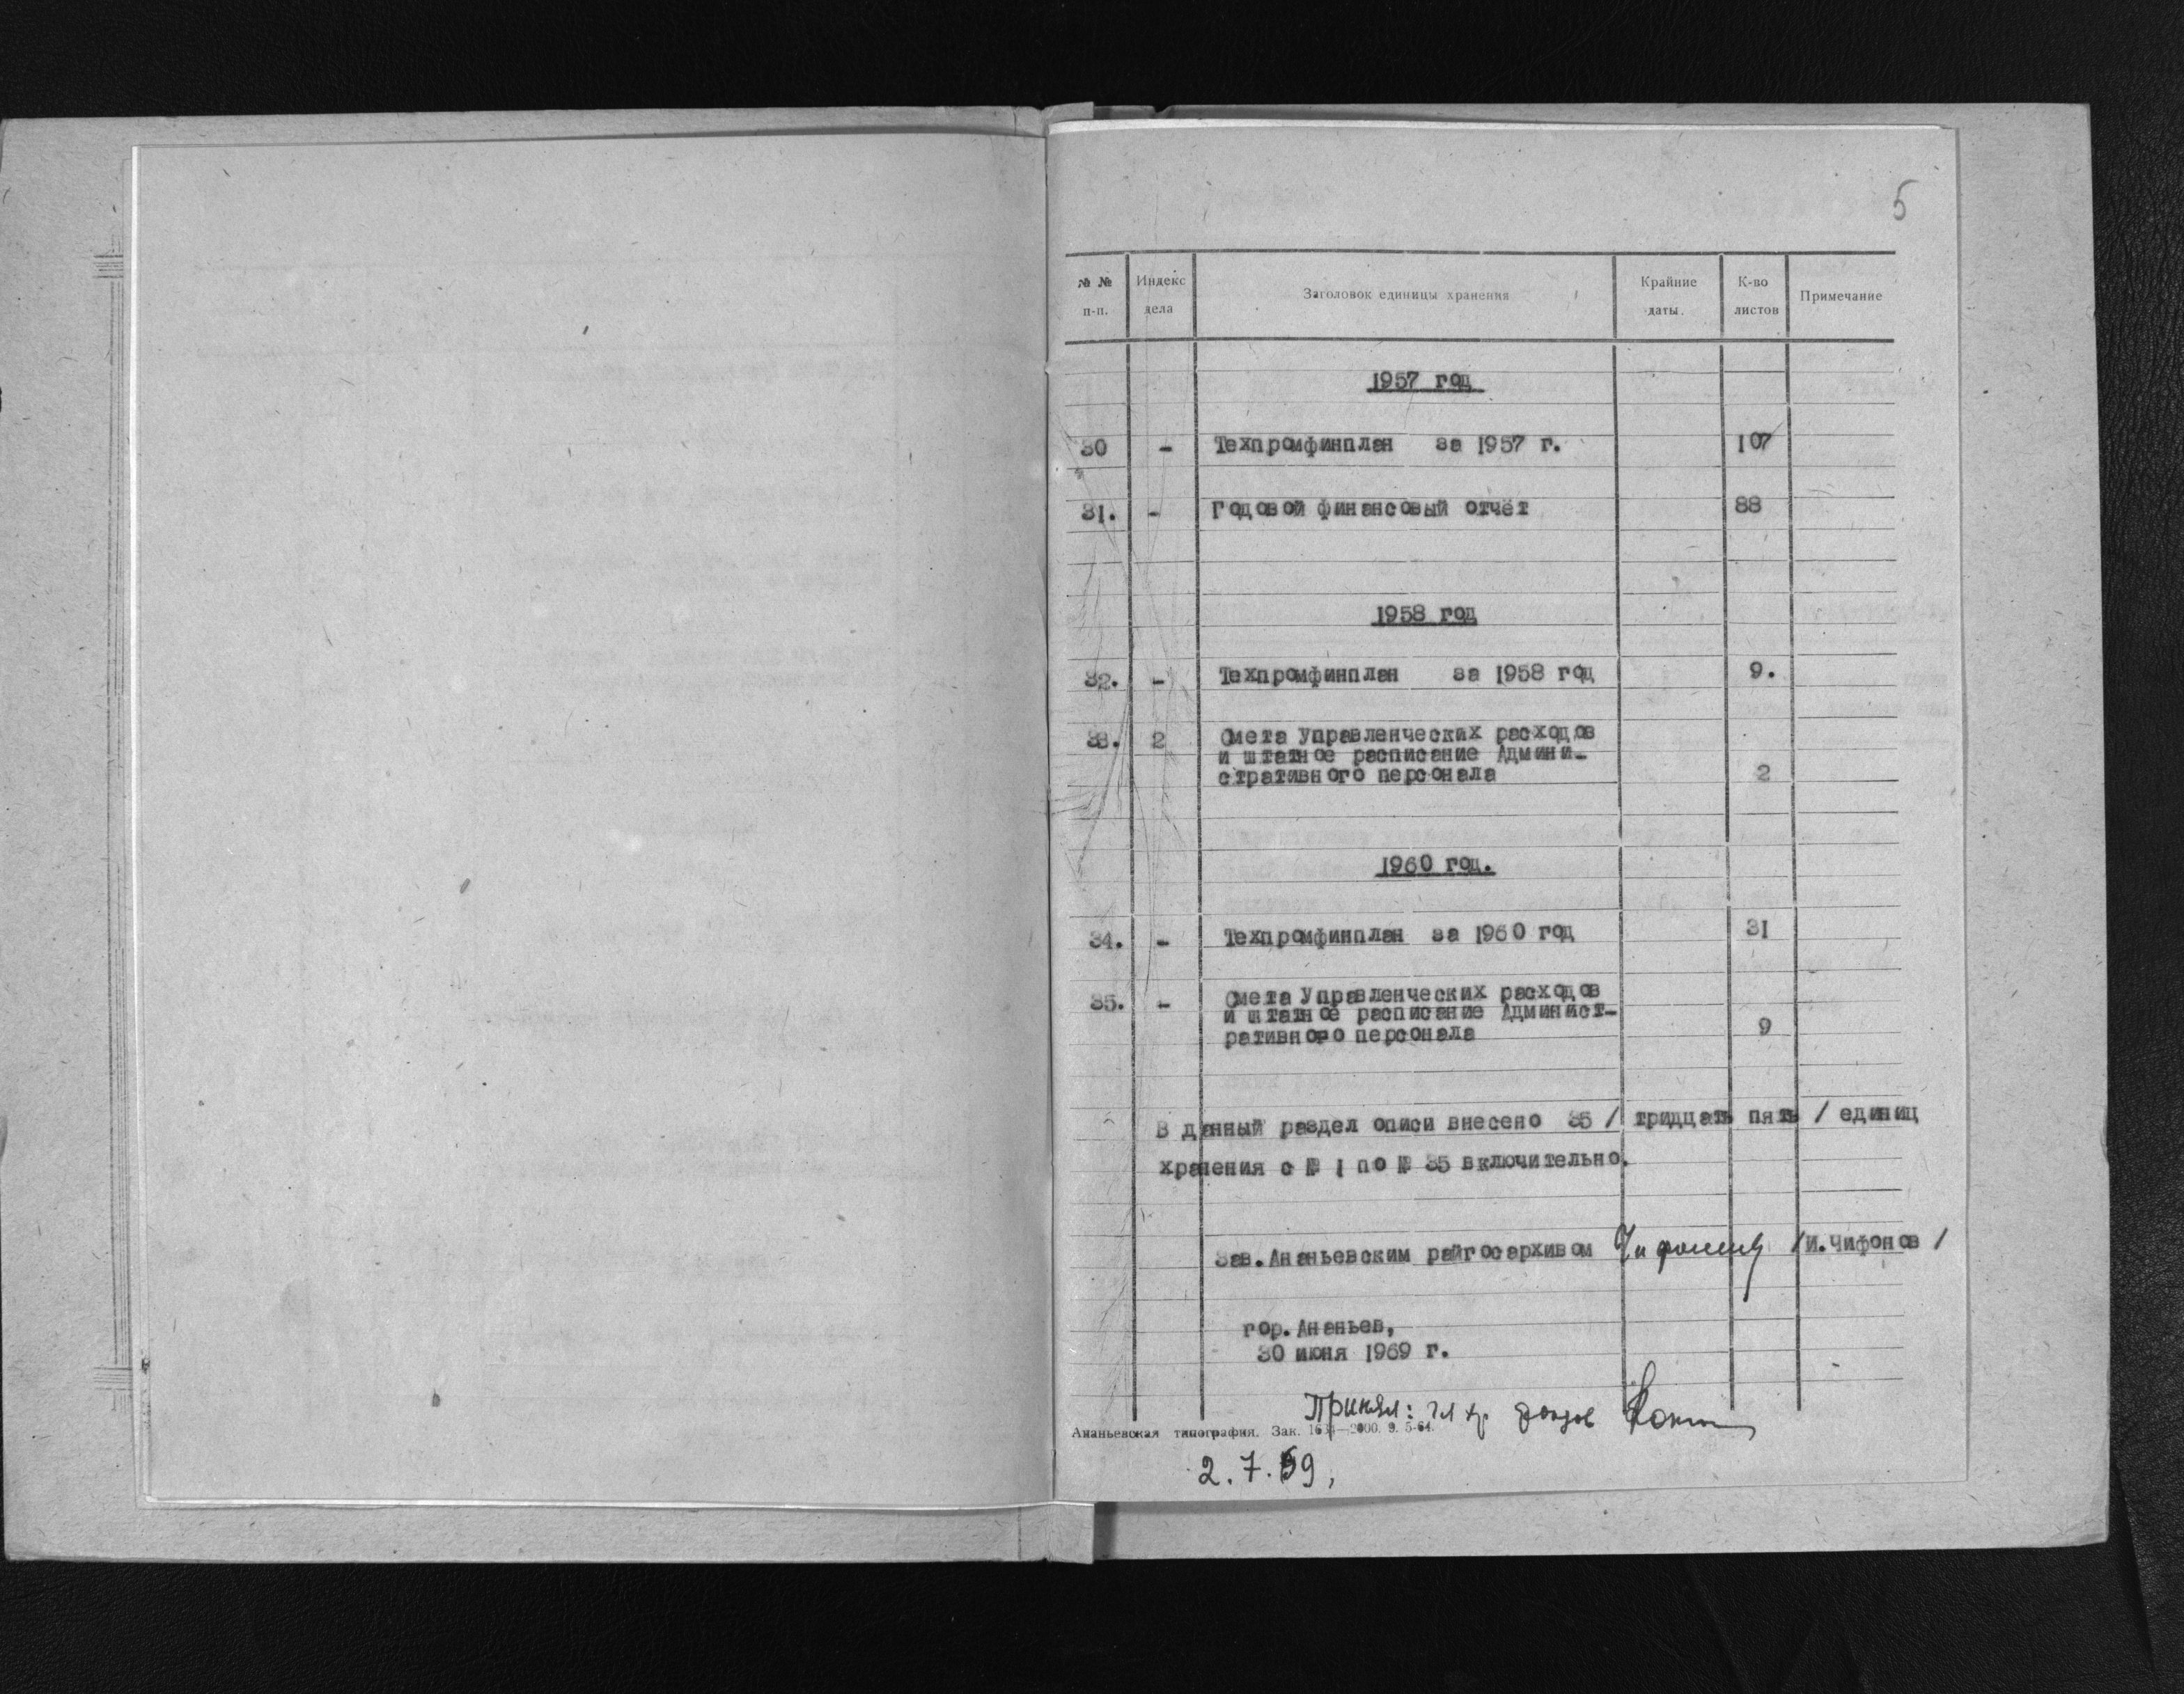 5
№ № п-п. Индекс дела Заголовок единицы хранения Крайние даты. К-во листов Примечание
1957 год
30 - Техпромфинплан за 1957 г. 107
31. - Годовой финансовый отчёт 88
1958 год
32. - Техпромфинплан за 1958 год 9.
33. 2 Смета Управленческих расходов
и штатное расписание Админи-
стративного персонала 2
1960 год.
34. - Техпромфинплан за 1960 год 31
35. - Смета Управленческих расходов
и штатное расписание Админист-
ративного персонала 9
В данный раздел описи внесено 35 / тридцать пять / единиц
хранения с № 1 по № 35 включительно.
Зав. Ананьевским райгосархивом /И.Чифонов /
гор. Ананьев,
30 июня 1969 г.
Принял: гл хр фондов
Ананьевская типография. Зак. 2000. 9. 5-64.
2.7.69,